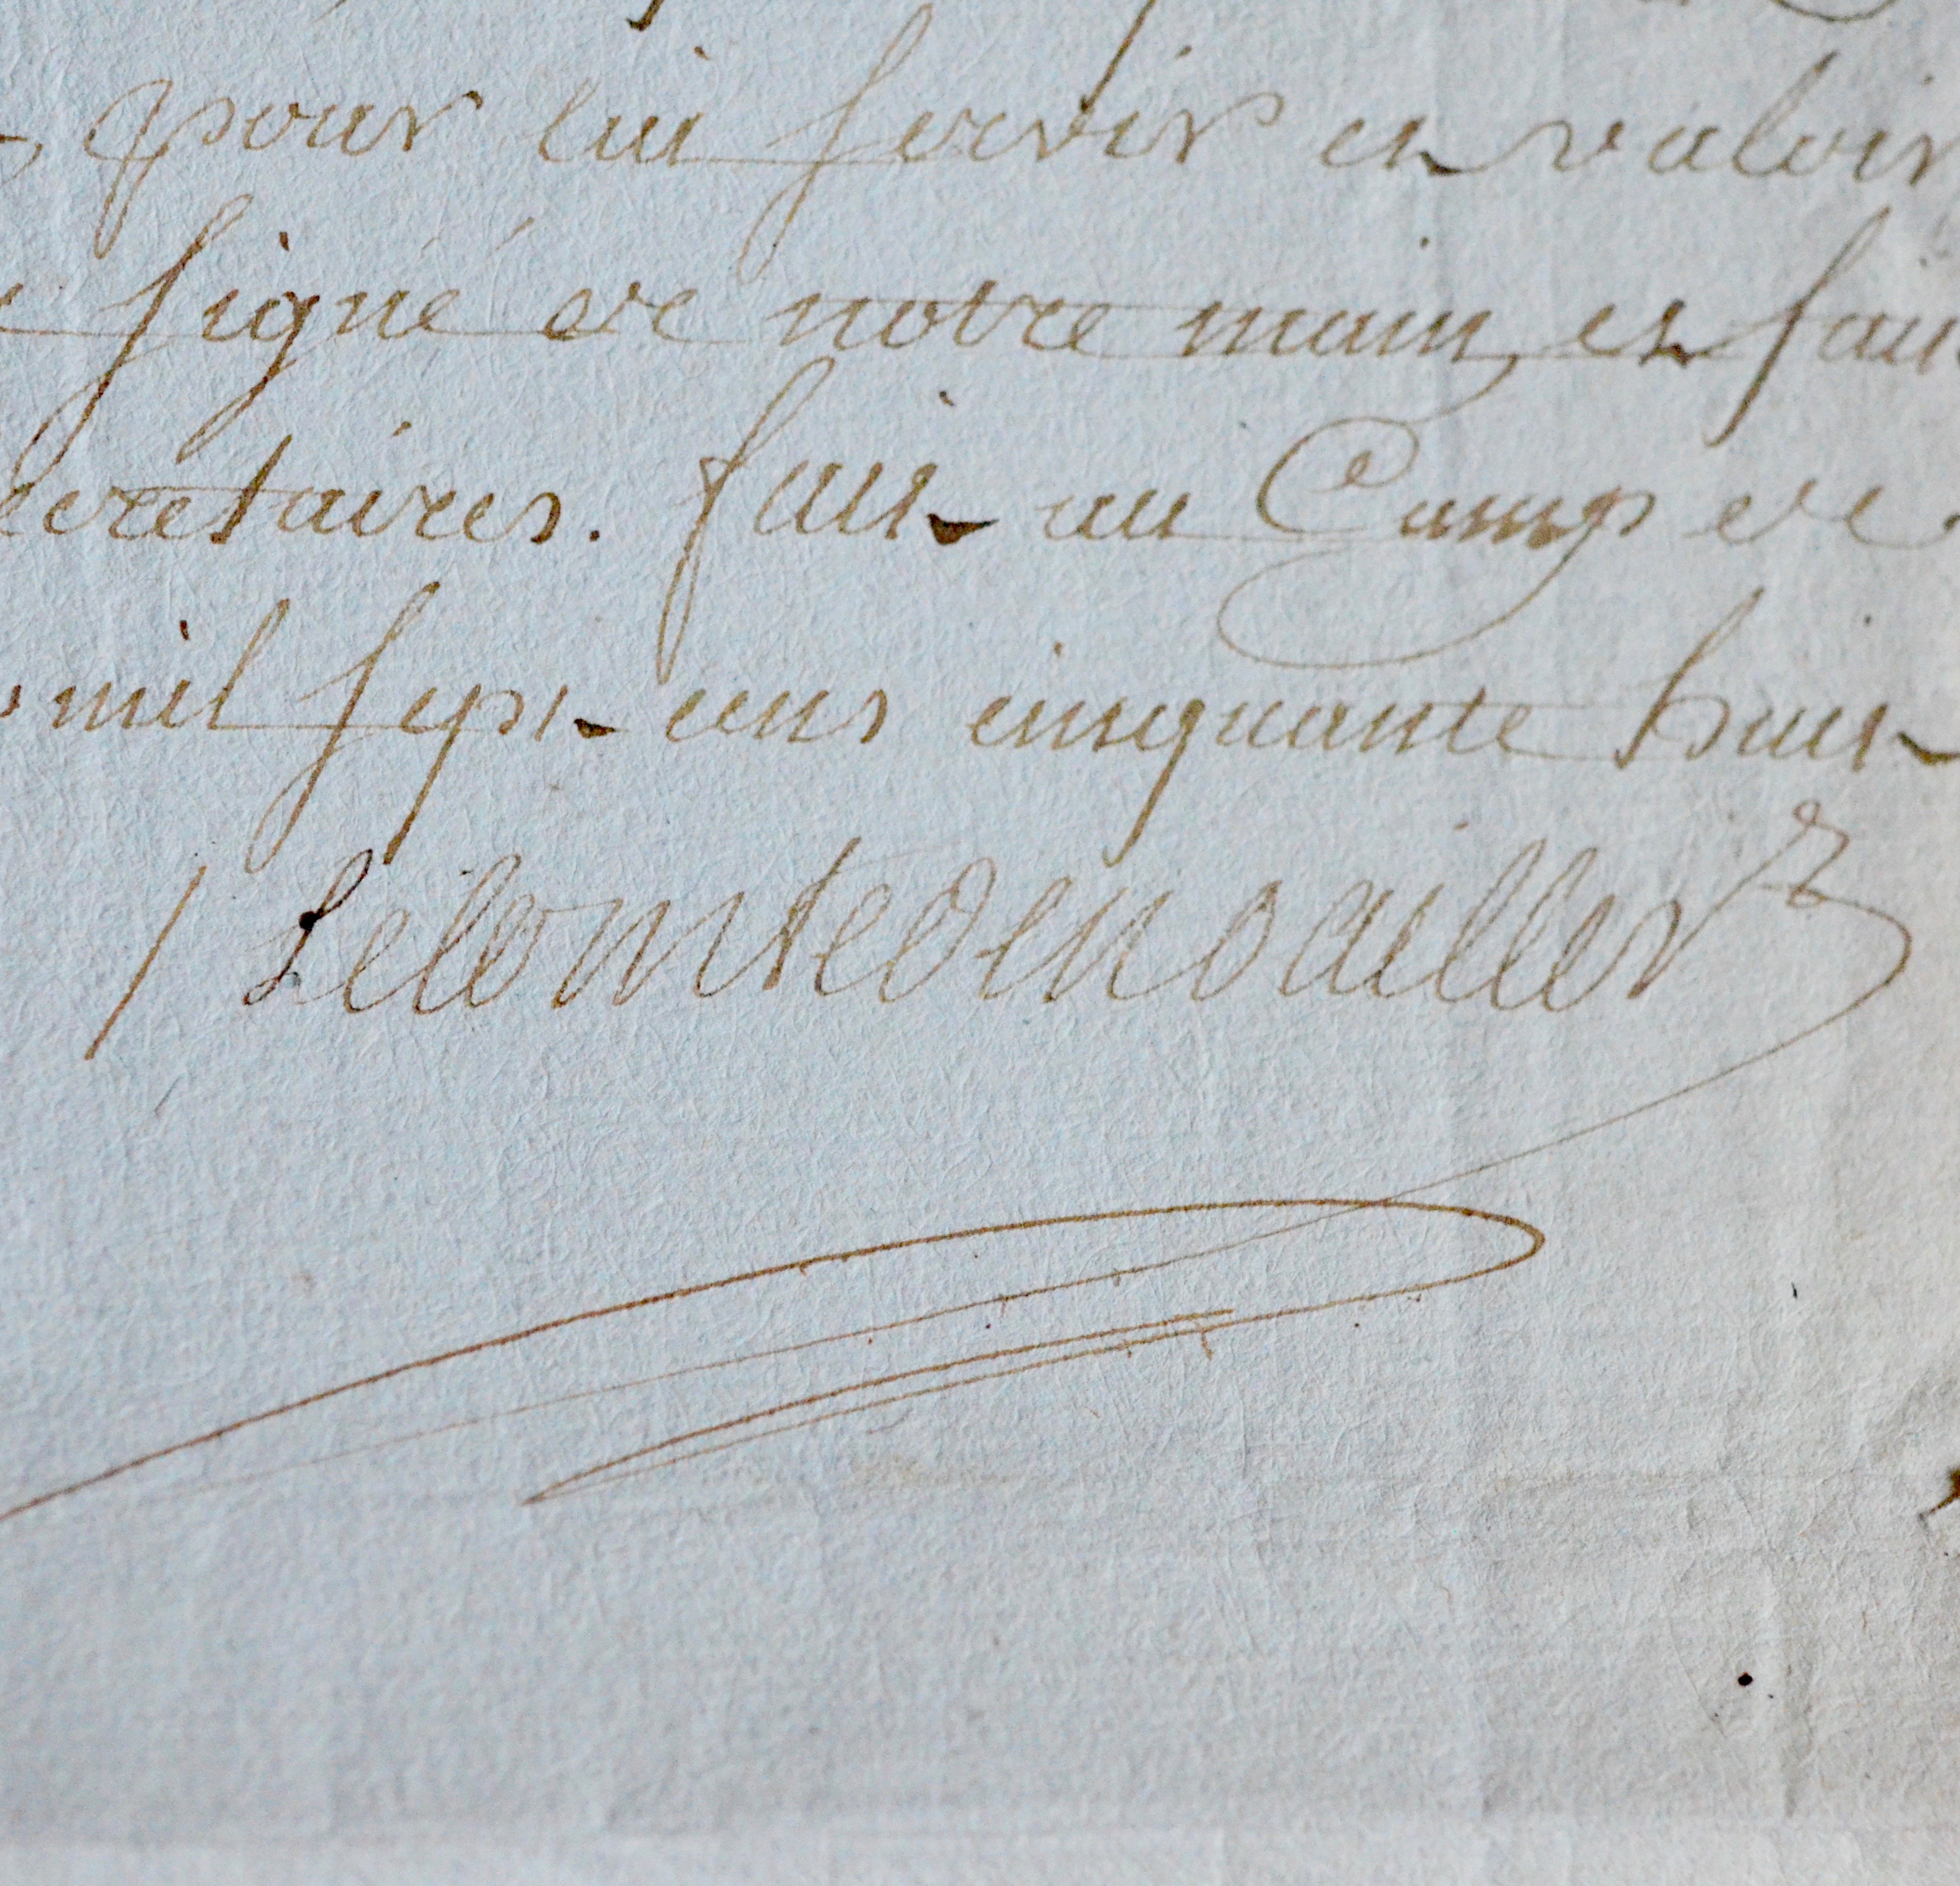 pour lui servir et valoir
signé de notre main, et fait
ecretaires. fait au Camp de
mil sept cens cinquante huit
Lecomtedenoailles